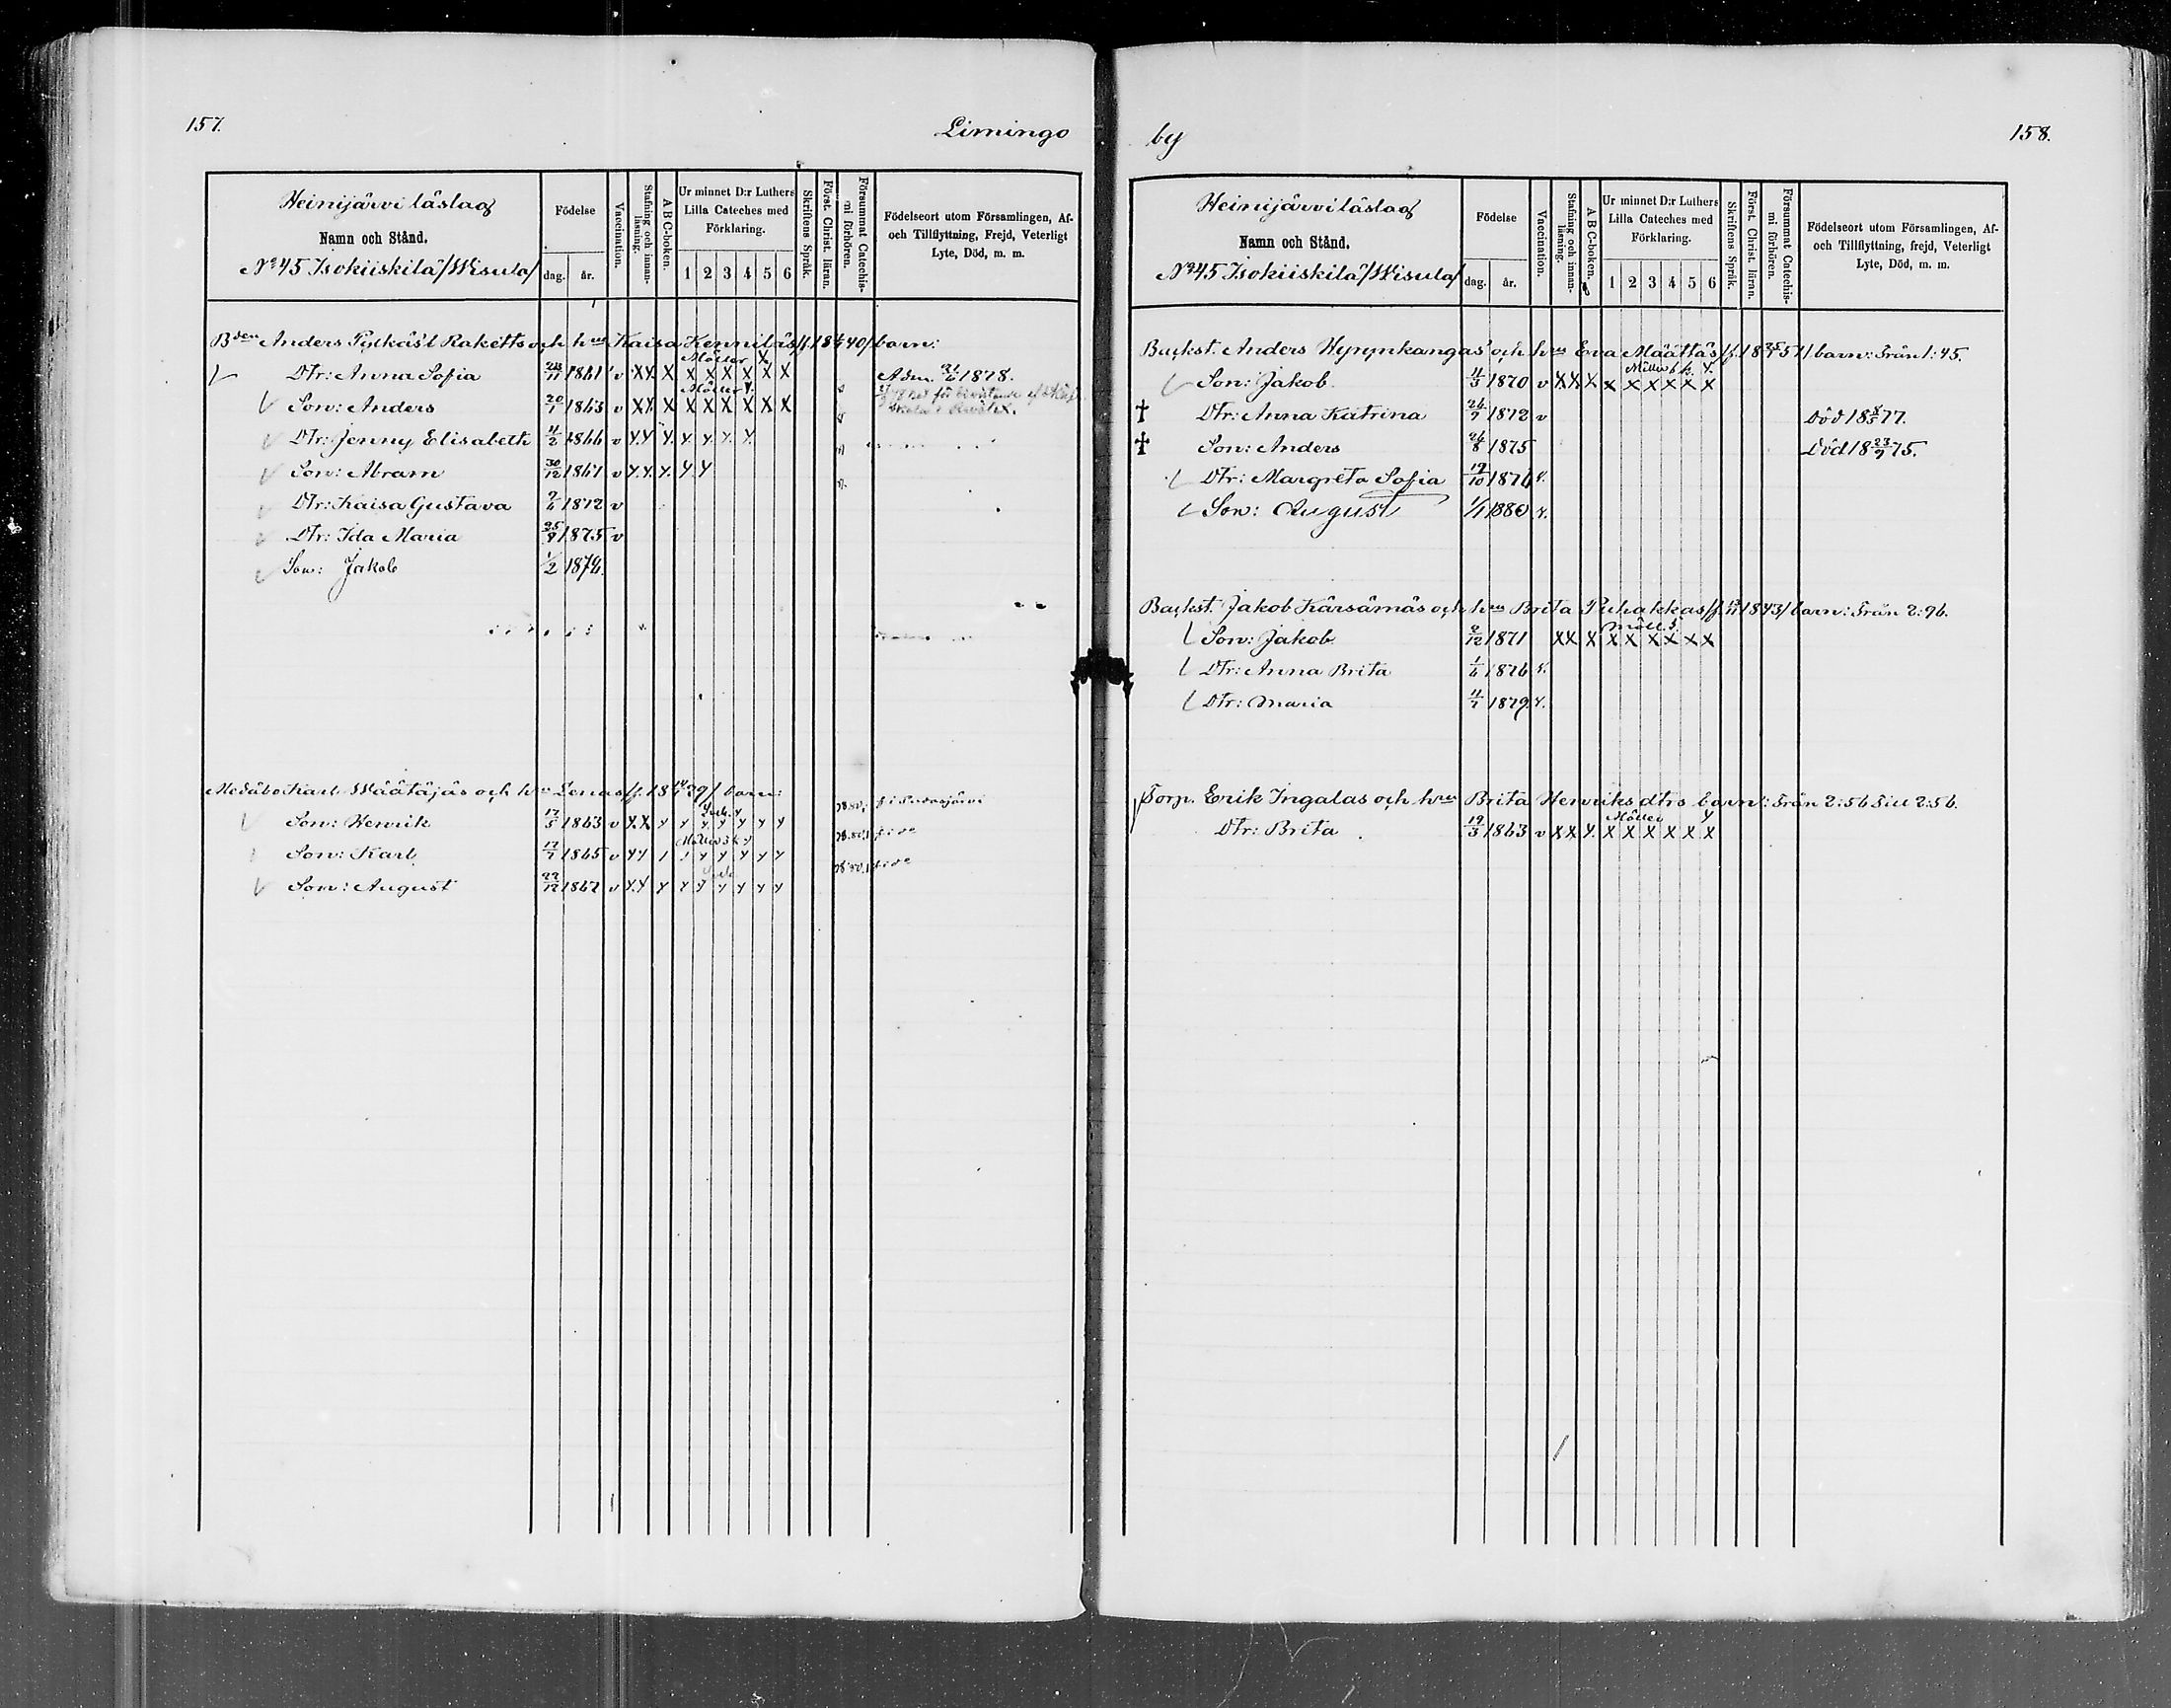 157.
Limingo
Heinijärvi läslag
Namn och Stånd.
No 45 Isokiiskilä /Wisula/
Födelse
dag. år.
Vaccination.
Stafning och innanläsning.
A B C-boken.
Ur minnet D:r Luthers Lilla Cateches med Förklaring.
1 2 3 4 5 6
Skriftens Språk.
Först. Christ. läran.
Försummat Catechismi förhören.
Födelseort utom Församlingen, Af- och Tillflyttning, Frejd, Veterligt Lyte, Död, m. m.
Bden Anders Pylkäs l Raketts och hus Kaisa Kenniläs /f. 18 40/ barn:
Möller X
Dtr: Anna Sofia 1861 v XX X X X X X X X Adm. 21/6 1878.
Möller
Son: Anders 20/1 1863 v XX X X X X X X X
Dtr: Jenny Elisabeth 11/2 1866 v
Son: Abram 30/12 v
Dtr: Kaisa Gustava 1872 v
Dtr: Ida Maria 1875 v
Son: Jakob 1/2 1878.
Karl Määtäjäs och Lenas /f. 18 29/ barn:
Son: Henrik 17/5 1863 v
Son: Karl 17/7 1865 v
Son: August 22/12 1867 v
by
158.
Heinijärvi läslag
Namn och Stånd.
No 45 Isokiiskilä /Wisula/
Födelse
dag. år.
Vaccination.
Stafning och innanläsning.
A B C-boken.
Ur minnet D:r Luthers Lilla Cateches med Förklaring.
1 2 3 4 5 6
Skriftens Språk.
Först. Christ. läran.
Försummat Catechismi förhören.
Födelseort utom Församlingen, Af- och Tillflyttning, frejd, Veterligt Lyte, Död, m. m.
Backst. Anders Hyypnkangas och hus Eva Määttäs /f. 18 51/ barn: Från 1:45.
Son: Jakob 11/3 1870 v XX X X X X X X X
† Dtr: Anna Katrina 26/7 1872 v Död 18 77.
† Son: Anders 26/8 1875 Död 18 23/9 75.
Dtr: Margreta Sofia 19/10 1876 v.
Son: August 1/1 1880 v.
Backst. Jakob Kärsämäs och hus Brita Puhakkas /f. 1843/ barn: Från 2:96.
Möll.
Son: Jakob 2/12 1871 XX X X X X X X X
Dtr: Anna Brita 1/6 1876 v.
Dtr: Maria 1879 v.
Torp. Erik Ingalas och hus Brita Henriksdtrs barn: Från 2:56 Till 2:56.
Möller
Dtr: Brita 19/3 1863 v XX X X X X X X X